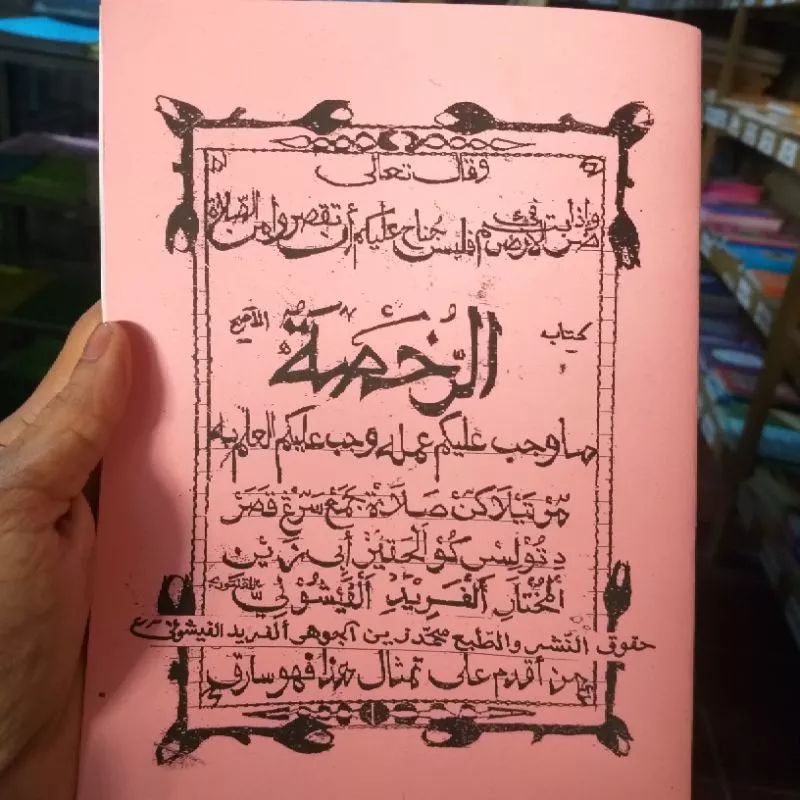 وقال تعالى
وإذا ضربتم في الأرض فليس عليكم جناح أن تقصروا من الصلاة
كتاب الرُّخْصَةُ
ما وجب عليكم عمله وجب عليكم العلم به
مّرْتَيْلَاكَنْ صَلَاةْ جَمَعْ سَرْڠْ قَصَرْ
دِتُوْلِسْ كَوْ الْحَقِيْرْ أَبِيْ زَيْن
الْمُخْتَارْ أَلْفَرِيْدِ أَلْفَيْشُوْنِيّ
حقوق النشر والطبع محمد زين الجوهر ألفريد الفيشوني
من أقدم على تمثال هذا فهو سارق